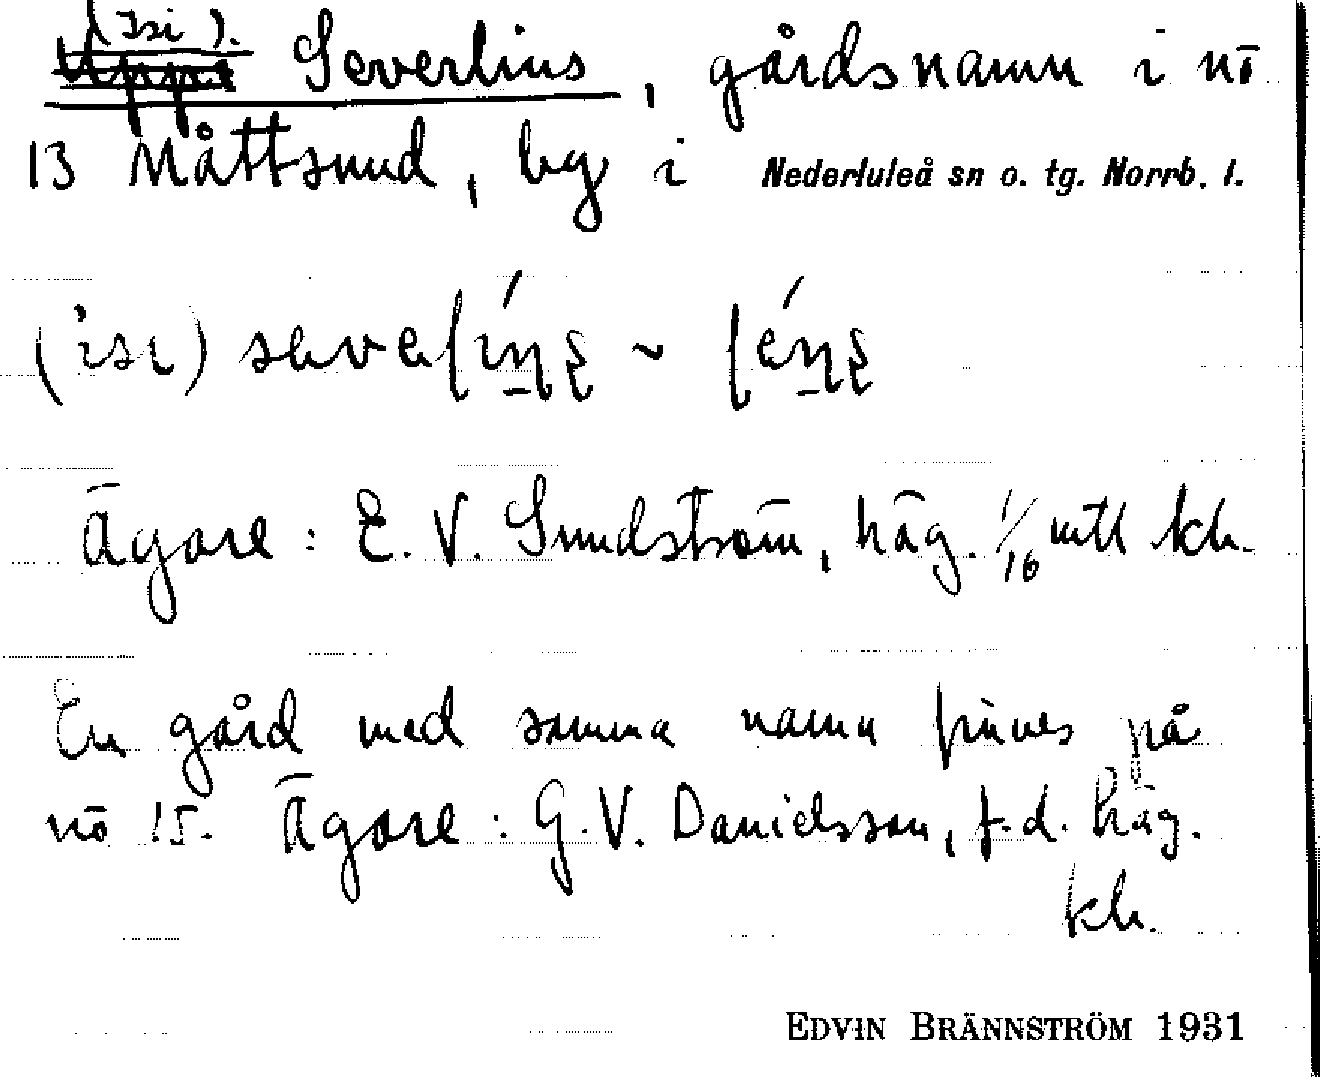 (Isi).
Uppi Severlins, gårdsnamn i nō
13 Måttsund, by i Nederluleå sn o. tg. Norrb. l.
(isi)
Ägare: E. V. Sundström, häg. 1/16 mtl kh.
En gård med samma namn finnes på
nō 15. Ägare: G. V. Danielsson, f.d. häg.
kh.
EDVIN BRÄNNSTRÖM 1931